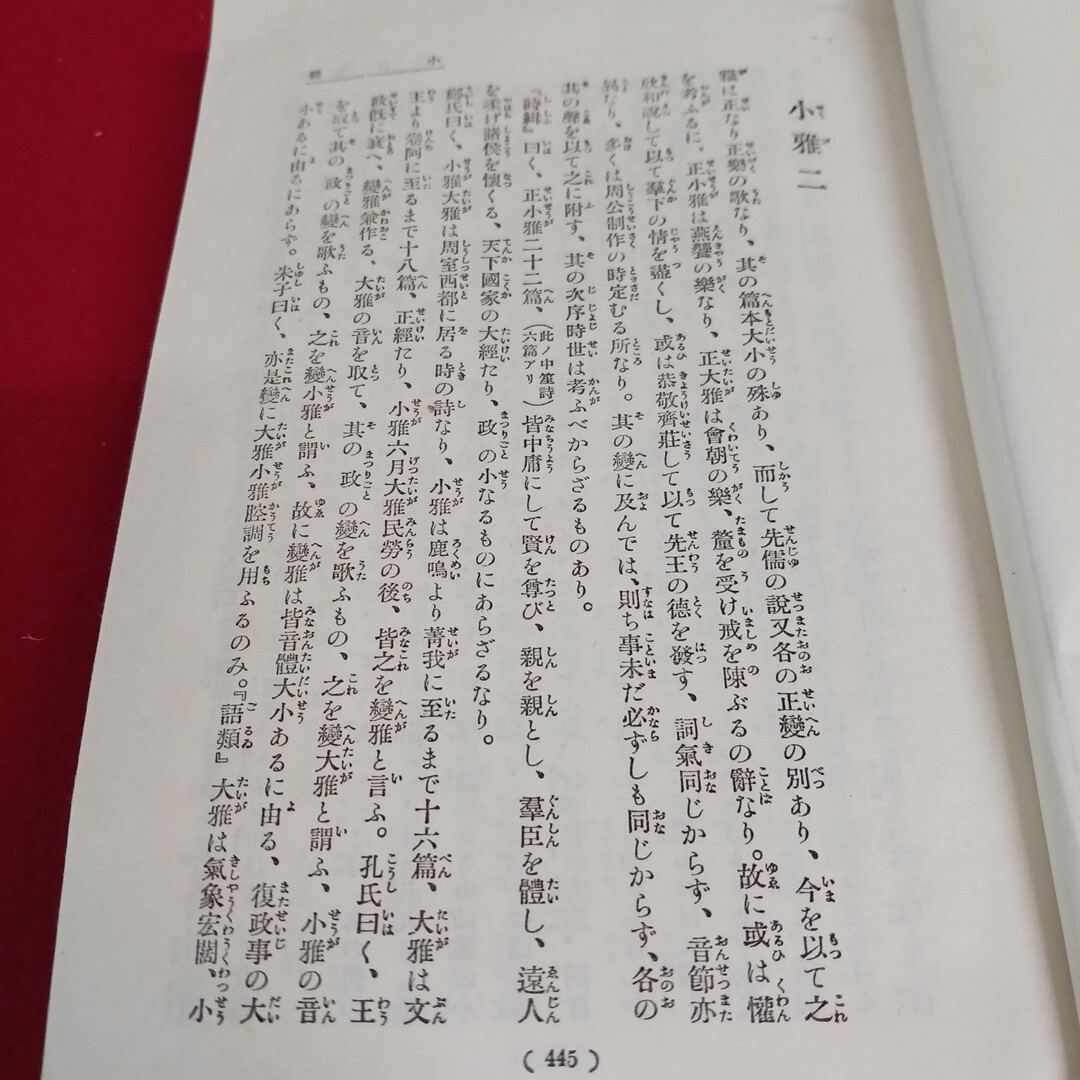 小雅
小雅二
雅は正なり正樂の歌なり、其の篇本大小の殊あり、而して先儒の說又各の正變の別あり、今を以て之
を考ふるに、正小雅は燕饗の樂なり、正大雅は會朝の樂、釐を受け戒を陳ぶるの辭なり。故に或は懽
欣和說して以て羣下の情を盡くし、或は恭敬齊莊して以て先王の德を發す、詞氣同じからず、音節亦
異なり、多くは周公制作の時定むる所なり。其の變に及んでは、則ち事未だ必ずしも同じからず、各の
其の聲を以て之に附す、其の次序時世は考ふべからざるものあり。
『詩緝』曰く、正小雅二十二篇、(此ノ中笙詩六篇アリ)皆中庸にして賢を尊び、親を親とし、羣臣を體し、遠人
を柔げ諸侯を懷くる、天下國家の大經たり、政の小なるものにあらざるなり。
鄭氏曰く、小雅大雅は周室西都に居る時の詩なり、小雅は鹿鳴より菁我に至るまで十六篇、大雅は文
王より卷阿に至るまで十八篇、正經たり、小雅六月大雅民勞の後、皆之を變雅と言ふ。孔氏曰く、王
政既に衰へ、變雅兼作る、大雅の音を取て、其の政の變を歌ふもの、之を變大雅と謂ふ、小雅の音
を取て其の政の變を歌ふもの、之を變小雅と謂ふ、故に變雅は皆音體大小あるに由る、復政事の大
小あるに由るにあらず。朱子曰く、亦是變に大雅小雅腔調を用ふるのみ。『語類』大雅は氣象宏闊、小
(445)